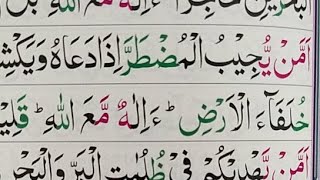 الْبَحْرَيْنِ حَاجِزًا ؕ ءَاِلٰهٌ مَّعَ اللّٰهِ ؕ بَلْ
اَمَّنْ يُّجِيْبُ الْمُضْطَرَّ اِذَا دَعَاهُ وَيَكْشِفُ
خُلَفَآءَ الْاَرْضِ ؕ ءَاِلٰهٌ مَّعَ اللّٰهِ ؕ قَلِيْلًا
اَمَّنْ يَّهْدِيْكُمْ فِيْ ظُلُمٰتِ الْبَرِّ وَالْبَحْرِ